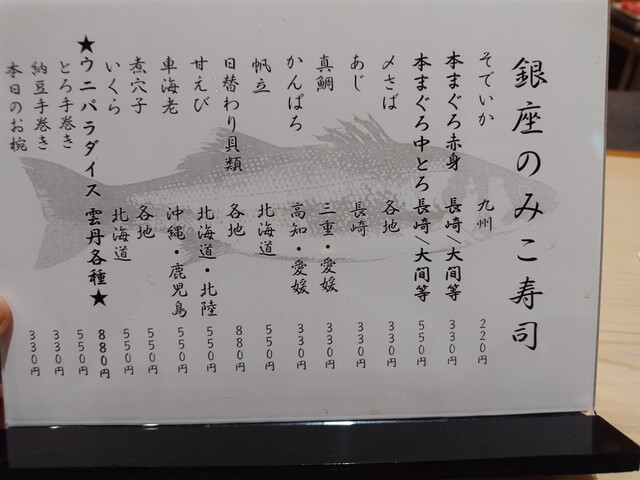 銀座のみこ寿司
そでいか 九州 220円
本まぐろ赤身 長崎/大間等 330円
本まぐろ中とろ 長崎/大間等 550円
〆さば 各地 330円
あじ 長崎 330円
真鯛 三重・愛媛 330円
かんぱち 高知・愛媛 330円
帆立 北海道 550円
日替わり貝類 各地 880円
甘えび 北海道・北陸 550円
車海老 沖縄・鹿児島 550円
煮穴子 各地 550円
いくら 北海道 550円
★ウニパラダイス 雲丹各種★ 880円
とろ手巻き 550円
納豆手巻き 330円
本日のお椀 330円